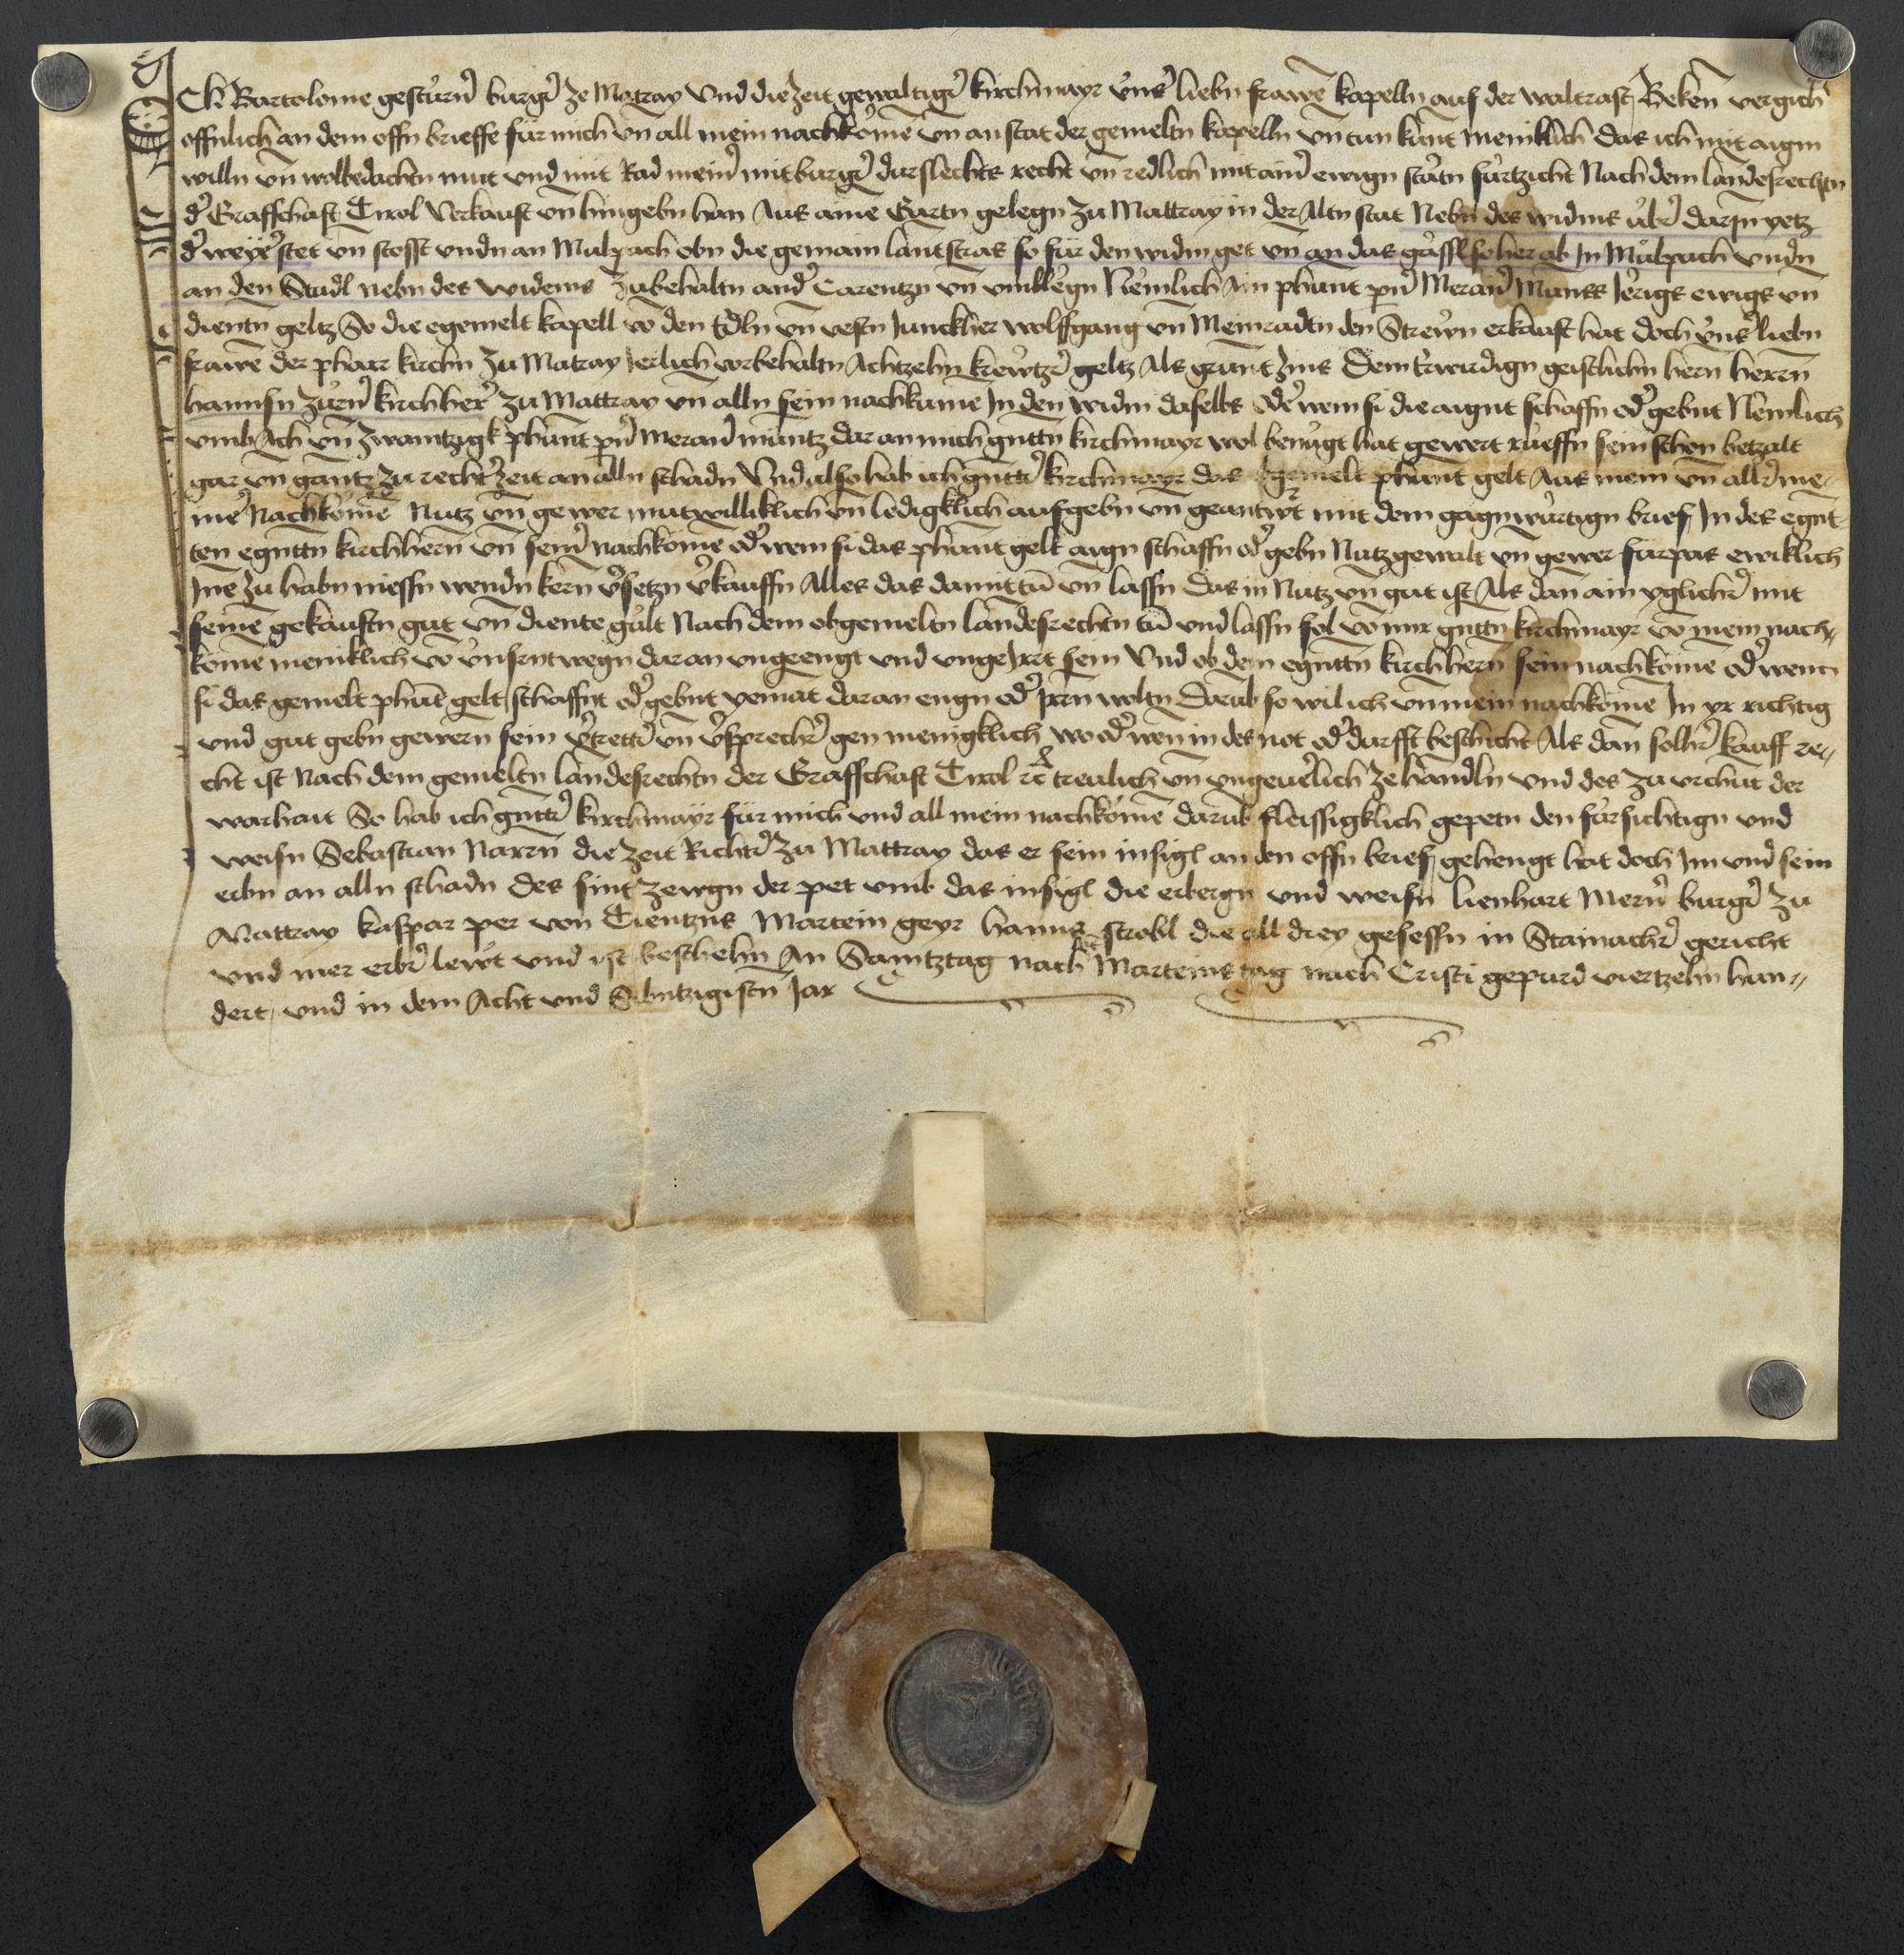 Ich Bartolome gestůrn̄ burg̓ ze Matray Vnd die zeit gewaltig̓ kirchmayr vn̄s̓ liebn frawē kapelln auf der waltrast Beken̄ vergich
offnlich an dem offn brieffe für mich vn̄ all mein nachkōme vn̄ an stat der gemeltn kapelln vn̄ tun kunt meniklich das ich mit aigm
willn vn̄ wolbedachtn mut vnd mit Rad mein̓ mitburg̓ durslechts recht vn̄ redlich mit ain̓ ewign stätn fürtzicht Nach dem landesrechtn
d̓ Graffschaft Tirol Verkauft vn̄ hingebn han Aus aime Gartn gelegn zu Mattray in der Altn stat Nebn des widms vb̓ darin yetz
d̓ weyē stet vn̄ stosst vndn an Mülpach obn die gemain lantstras so für den widm get vn̄ an das gässl so her ab In Mülpach vndn
an den Stadl nebn des widems zubehaltn and̓ Carentzn vn̄ vmblegn Nemlich Ain phunt pn̓ Meran̓ Munss Jerigs ewigs vn̄
dientn geltz So die egemelt kapell vō den Edln vn̄ vestn Junckher wolffgang vn̄ Meinradtn den Strewn erkauft hat doch vns̓ liebn
frawē der pharr kirchn zu Matray Jerlich vorbehaltn Achtzehn krewtz̓ geltz Als grunt zins Dem Erwirdign geistlichn hern herrn̄
hannsn zürn̄ kirchher̓ zu Mattray vn̄ alln sein nachkume In den widm daselbs od̓ wem si die aignt schaffn od̓ gebnt Nemlich
vmb Ach vn̄ zwaintzigk phunt pn̓ Meran̓ muntz dar an mich gnttn kirchmayr wol benügt hat gewert rueffn sein schon betzalt
gar vn̄ gantz zu recht̓ zeit an alln schadn Vnd also hab ich gntt̓ kirchmayr das egemelt phunt gelt Aus mein vn̄ all̓ me⸗
ine̓ Nachkōme Nutz vn̄ gewer mutwilliklich vn̄ ledigklich aufgebn vn̄ geantwrt mit dem gagnwürtign brief In des egnt
ten egnttn kirchhern vn̄ sein̓ nachkōme od̓ wem si das phunt gelt aign schaffn od̓ gebn Nutz gewalt vn̄ gewer fürpas ewiklich
Ine zu habn niessn wendn kern v̓setzn v̓kauffn Alles das damit tū vn̄ lassn das in Nutz vn̄ gut ist Als dan ain yglich̓ mit
seinē gekauftn gut vn̄ diente gült Nach dem obgemeltn landesrechtn tū vnd lassn sol vō mir gnttn kirchmayr vō mein nach⸗
kōme meniklich vō vnsrntwegn dar an vngeengt vnd vngeJrrt sein Vnd ob dem egnttn kirchhern sein nachkōme od̓ wem
si das gemelt phūt gelt schaffnt od̓ gebnt yemāt dar an engn od̓ Jrrn woltn Darub so wil ich vn̄ mein nachkōme In yr richtig
vnd gut gebn gewern sein v̓trett̓ vn̄ v̓sprech̓ gen menigklich wo od̓ wen in des not od̓ durfft beschicht Als dan solh̓ kauff re⸗
cht ist Nach dem gemeltn landesrechtn der Graffschaft Tirol rc̄ treulich vn̄ vngeuerlich ze handln vnd des zu vrchut der
warhait So hab ich gntt̓ kirchmayr für mich vnd all mein nachkōme darub fleissigklich gepetn den fürsichtign vnd
weisn Sebastian Narrn̄ die zeit Richt̓ zu Mattray das er sein insigl an den offn brief gehengt hat doch Im vnd sein
erbn an alln schadn Des sint zewgn der pet vmb das insigl die erbergn vnd weisn lienhart Mern̓ burg̓ zu
Mattray kaspar per von Tientzns Martein geyr hanns strobl die all drey gesessn in Stainach̓ gericht
vnd mer erb̓ lewt vnd ist beschehn An Samtztag nach Marteins tag nach Cristi gepurd viertzehn hun⸗
dert vnd in dem Acht vnd Sibntzigistn Jar